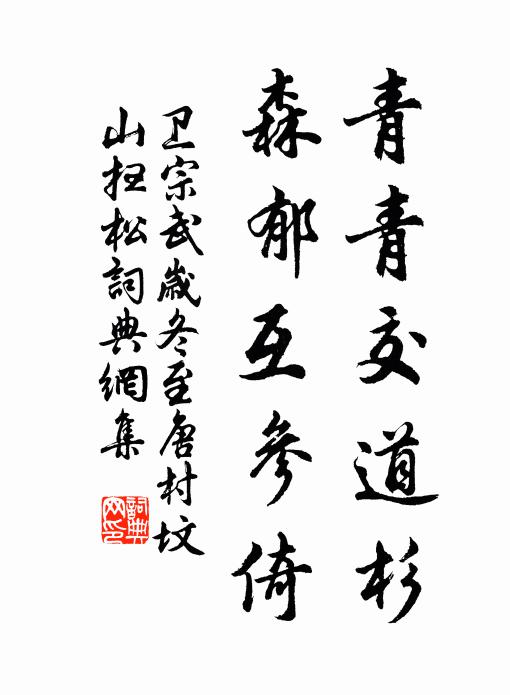 青青交道杉
森郁互參倚
卫宗武歲冬至唐村坟
山掃松詞典網集
詞典
网印